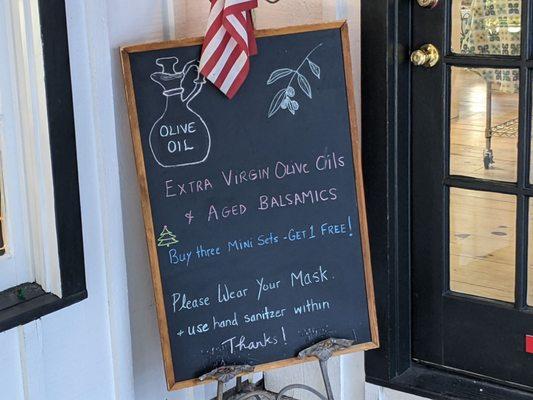 OLIVE
OIL
EXTRA VIRGIN OLIVE OILS
& AGED BALSAMICS
BUY THREE MINI SETS - GET 1 FREE!
Please Wear Your Mask
+ use hand sanitizer within
Thanks!